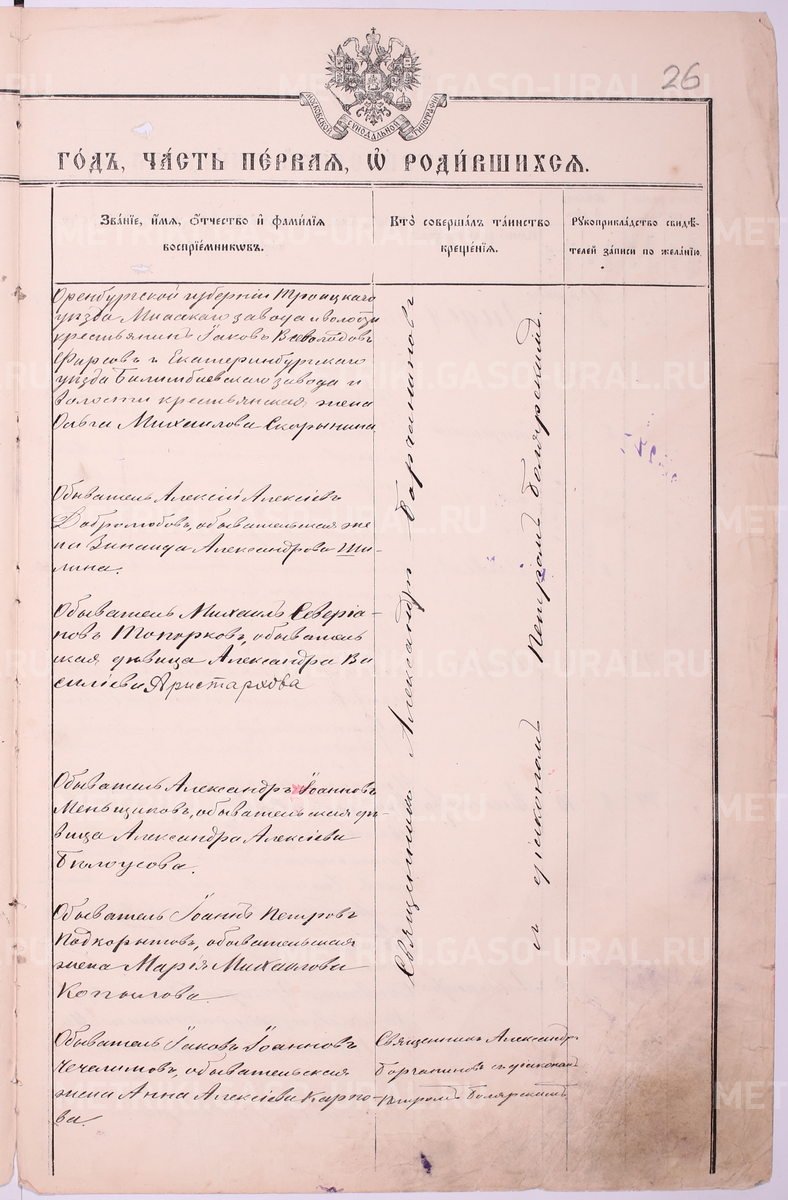 26
МОСКОВСКОЙ СѴНОДАЛЬНОЙ ТИПОГРАФІИ
ГОДЪ, ЧАСТЬ ПЕРВАЯ, Ѡ РОДИВШИХСЯ.
Званіе, имя, отчество и фамилія
воспріемниковъ.
Кто совершалъ таинство
крещенія.
Рукоприкладство свидѣ-
телей записи по желанію.
Оренбургской губерніи Троицкаго
уѣзда Міасскаго завода и волости
крестьянинъ Іаковъ Всеволодовъ
Фирсовъ и Екатеринбургскаго
уѣзда Билимбаевскаго завода и
волости крестьянская жена
Ольга Михаилова Скорынина
Обыватель Алексій Алексіевъ
Добролюбовъ, обывательская же
на Зинаида Александрова Ши-
лина.
Обыватель Михаилъ Северіа-
новъ Топорковъ, обыватель
ская дѣвица Александра Ва
силіева Аристархова
Обыватель Александръ Іоанновъ
Меньщиковъ, обывательская дѣ-
вица Александра Алексіева
Бѣлоусова.
Обыватель Іоаннъ Петровъ
Подкорытовъ, обывательская
жена Марія Михаилова
Копылова.
Обыватель Іаковъ Іоанновъ
Чечелимовъ, обывательская
жена Анна Алексіева Карпо-
ва.
Священникъ Александръ
съ діакономъ
ПетромъБолярскимъ
Священникъ Александръ
и діакономъ Петромъ Болярскимъ.
METRIKI.GASO-URAL.RU